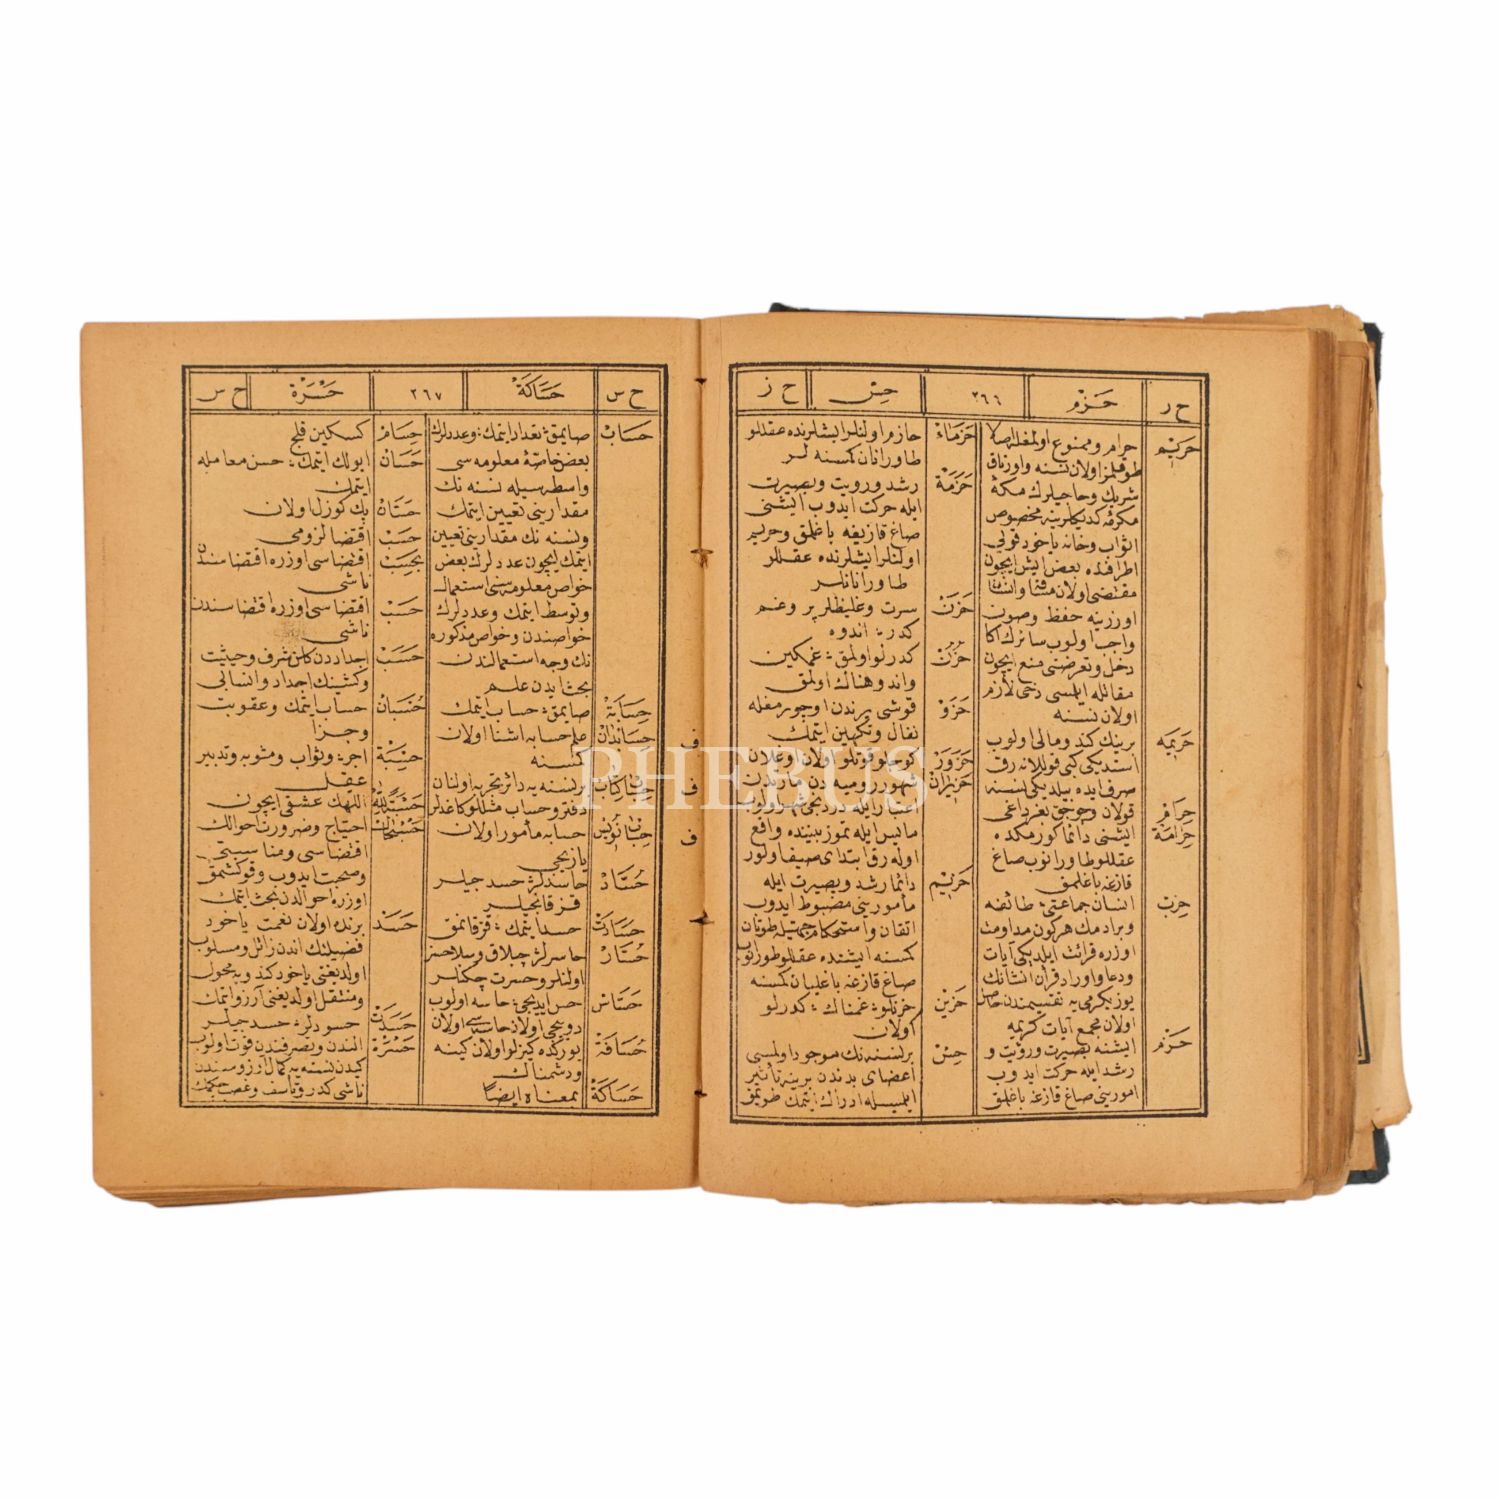 ح ر
حَزْم
٢٦٦
حِسّ
ح ز
حَرِيم
حرام وممنوع اولمغله اصلا
طوقلمز اولان نسنه واورتاق
شريك وحاجيلرك مكۀ
مكرمه كدكلرينه مخصوص
اثواب وخانه ياخود قولى
اطرافنده بعض ايش ايچون
مقتضى اولان
اوزرينه حفظ وصون
واجب اولوب سائرك اكا
دخل وتعرضنى منع ايچون
مقاتله ايلمسى دخى لازم
اولان نسنه
حَرِيمَه
برينك كند ومالى اولوب
استديكى كبى قوللانه رق
صرف ايده بيلديكى نسنه
حِزَام
قولان وچوجق بغرداغى
حِزَامَة
ايشنى دائما كورمكده
عقللو طاورانوب صاغ
قازيغه باغلمق
حِزب
انسان جماعتى؛ طائفه
وبرادمك هركون مداومت
اوزره قرائت ايلديكى آيات
ودعا واوراد قرآن انشانك
يوز يكرمى يه تقسيمندن حاصل
اولان مجمع آيات كريمه
حَزْم
ايشنه بصيرت ورؤيت و
رشد ايله حركت ايدوب
امورينى صاغ قازيغه باغلمق
حَزَمَاءُ
حازم اولنلر ايشلرنده عقللو
طاورانان كمسنه لر
حَزَمَة
رشد ورويت وبصيرت
ايله حركت ايدوب ايشنى
صاغ قازيغه باغلمق وحريم
اولنلر ايشلرنده عقللو
طاورانانلر
حَزَنْ
سرت وغليظلر ير وغم
كدر؛ اندوه
حُزُنْ
كدرلو اولمق؛ غمكين
واندوهناك اولمق
حَزَوْ
قوشى يرندن اوچورمغله
نفال وتكهين ايتمك
حَزَوَّرْ
كوجلو قوتلو اولان اوغلان
حَزِيرَانْ
شهور روميه دن مارتدن
اعتبار ايله دردنجى شهر اولوب
مايس ايله تموز بيننده واقع
اوله رق ابتداى صيف اولور
حَزِيم
دائما رشد وبصيرت ايله
مأمورينى مضبوط ايدوب
اتقان واستحكام
كمسنه ايشنده عقللو طورانوب
صاغ قازيغه باغليان كمسنه
حَزِينْ
حزنلو؛ غمناك؛ كدرلو
اولان
حِسّ
برنسنه نك موجود اولمسى
اعضاى بدندن برينه تأثير
ايلمسيله ادراك ايتمك طويمق
ح س
حَسَاكَةْ
٢٦٧
حَسْرَة
ح س
حساب
صايمق؛ تعداد ايتمك؛ وعددلرك
بعض خاصۀ معلومه سى
واسطه سيله نسنه نك
مقدارينى تعيين ايتمك
ونسنه نك مقدارينى تعيين
ايتمك ايچون عددلرك بعض
خواص معلومه سنى استعمال
وتوسط ايتمك وعددلرك
خواصندن وخواص مذكوره
نك وجه استعمالندن
بحث ايدن علم
حِسَابَة
صايمق؛ حساب ايتمك
حِسَابْدَان
علم حسابه اشنا اولان
كمسنه
حِسَابْ كِتَابْ
برنسنه يه دائر تجربه اولنان
دفتر وحساب مثللو كاغدلر
حِسَابْ نُويِسْ
حسابه مأمور اولان
يازيجى
حُسَّادْ
حاسدلر؛ حسدجيلر
قزقانجيلر
حَسَادَت
حسد ايتمك؛ قزقانمق
حُسَّارْ
حاسرلر؛ چبلاق وسلاحسز
اولنلر وحسرت چكنلر
حَسَّاسْ
حس ايديجى؛ حاسه اولوب
دويجى اولان حاسه سى اولان
حُسَافَة
يوركده كيزلو اولان كينه
ودشمناك
حَسَاكَة
بمعناه ايضاً
حُسَامْ
كسكين قلج
حَسَان
ايولك ايتمك؛ حسن معامله
ايتمك
حَسَّان
پك كوزل اولان
حَسْب
اقتضا لزومى
بِحَسَبْ
اقتضاسى اوزره اقتضاسندن
ناشى
حَسَبْ
اقتضاسى اوزره اقتضاسندن
ناشى
حَسَبْ
اجداددن كلن شرف وحيثيت
وكشينك اجداد وانسابى
حُسْبَانْ
حساب ايتمك وعقوبت
وجزا
حِسْبَة
اجر؛ وثواب ومثوبه وتدبير
عقل
حَسْبَةً لِلّٰهْ
اللهك عشقى ايچون
حَسْبَ الحَال
احتياج وضرورت احوالك
اقتضاسى ومناسبتى
وصحبت ايدوب وقونشمق
اوزره احوالدن بحث ايتمك
حَسَدْ
برنده اولان نعمت ياخود
فضيلتك اندن زائل ومسلوب
اولديغنى ياخود كندويه محول
ومنتقل اولديغنى آرزو ايتمك
حَسَدَة
حسودلر؛ حسدجيلر
حَسْرَة
الندن وتصرفندن فوت اولوب
كيدن نسنه يه كمال آرزوسندن
ناشى كدر وتأسف وغصه چكمك
ف
ف
ف
PHEBUS